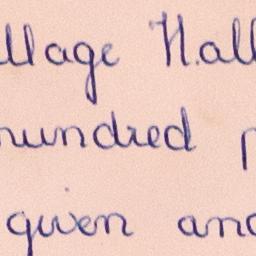 illage Hall
hundred p
given and